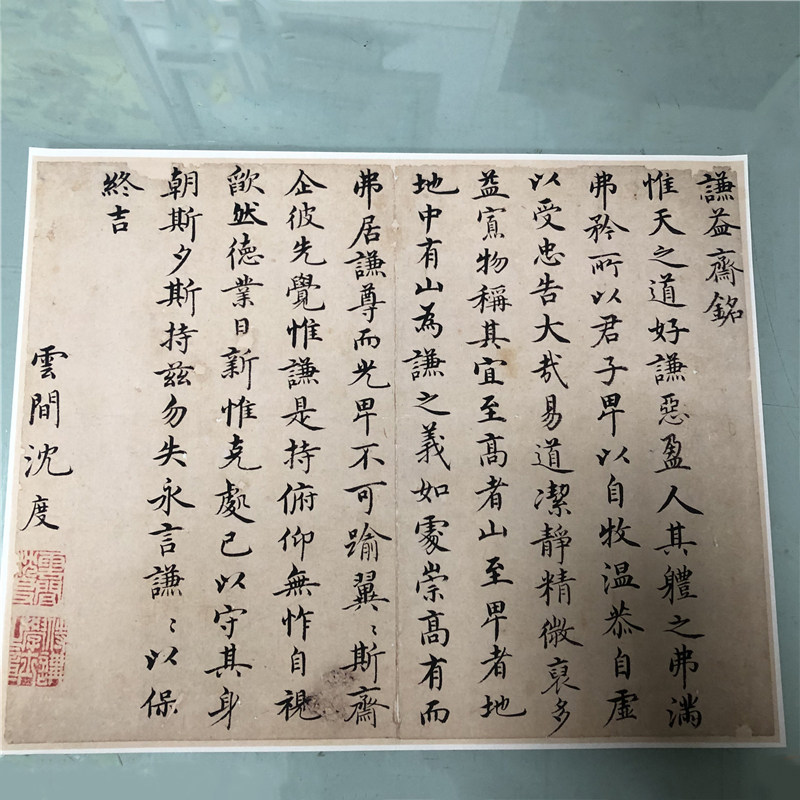 謙益齋銘
惟天之道好謙惡盈人其軆之弗滿
弗矜所以君子卑以自牧温恭自虛
以受忠告大哉易道潔靜精微裒多
益寡物稱其宜至高者山至卑者地
地中有山為謙之義如處崇高有而
弗居謙尊而光卑不可踰翼〻斯齋
企彼先覺惟謙是持俯仰無怍自視
欿然德業日新惟克處已以守其身
朝斯夕斯持兹勿失永言謙〻以保
終吉
雲間沈度